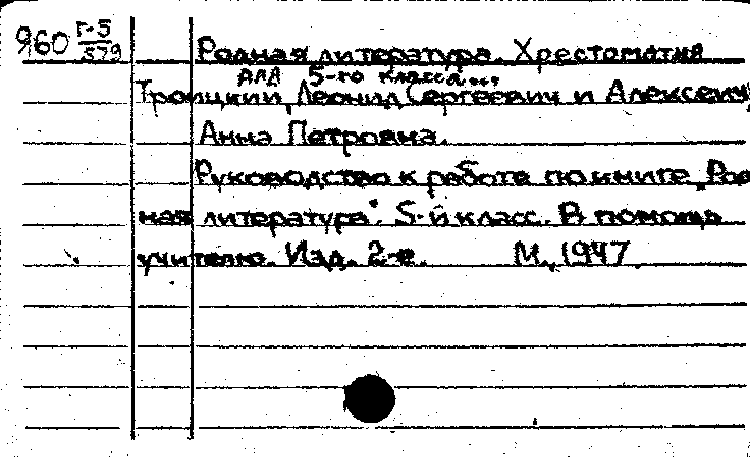 Я60 Г-5/579
Родная литература. Хрестоматия
для 5-го класса...
Троицкий, Леонид Сергеевич и Алексеич,
Анна Петровна.
Руководство к работе по книге „Род
ная литература". 5-й класс. В помощь
учителю. Изд. 2-е. М., 1947.